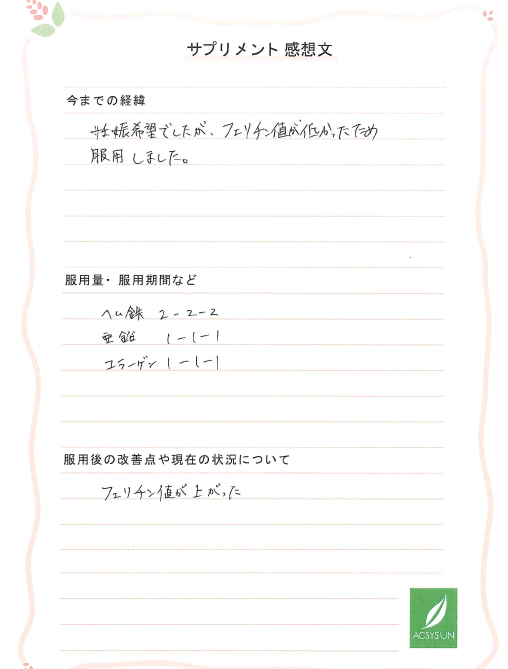 サプリメント 感想文
今までの経緯
妊娠希望でしたが、フェリチン値が低かったため
服用しました。
服用量・服用期間など
ヘム鉄 2-2-2
亜鉛 1-1-1
コラーゲン 1-1-1
服用後の改善点や現在の状況について
フェリチン値が上がった
ACSYSUN